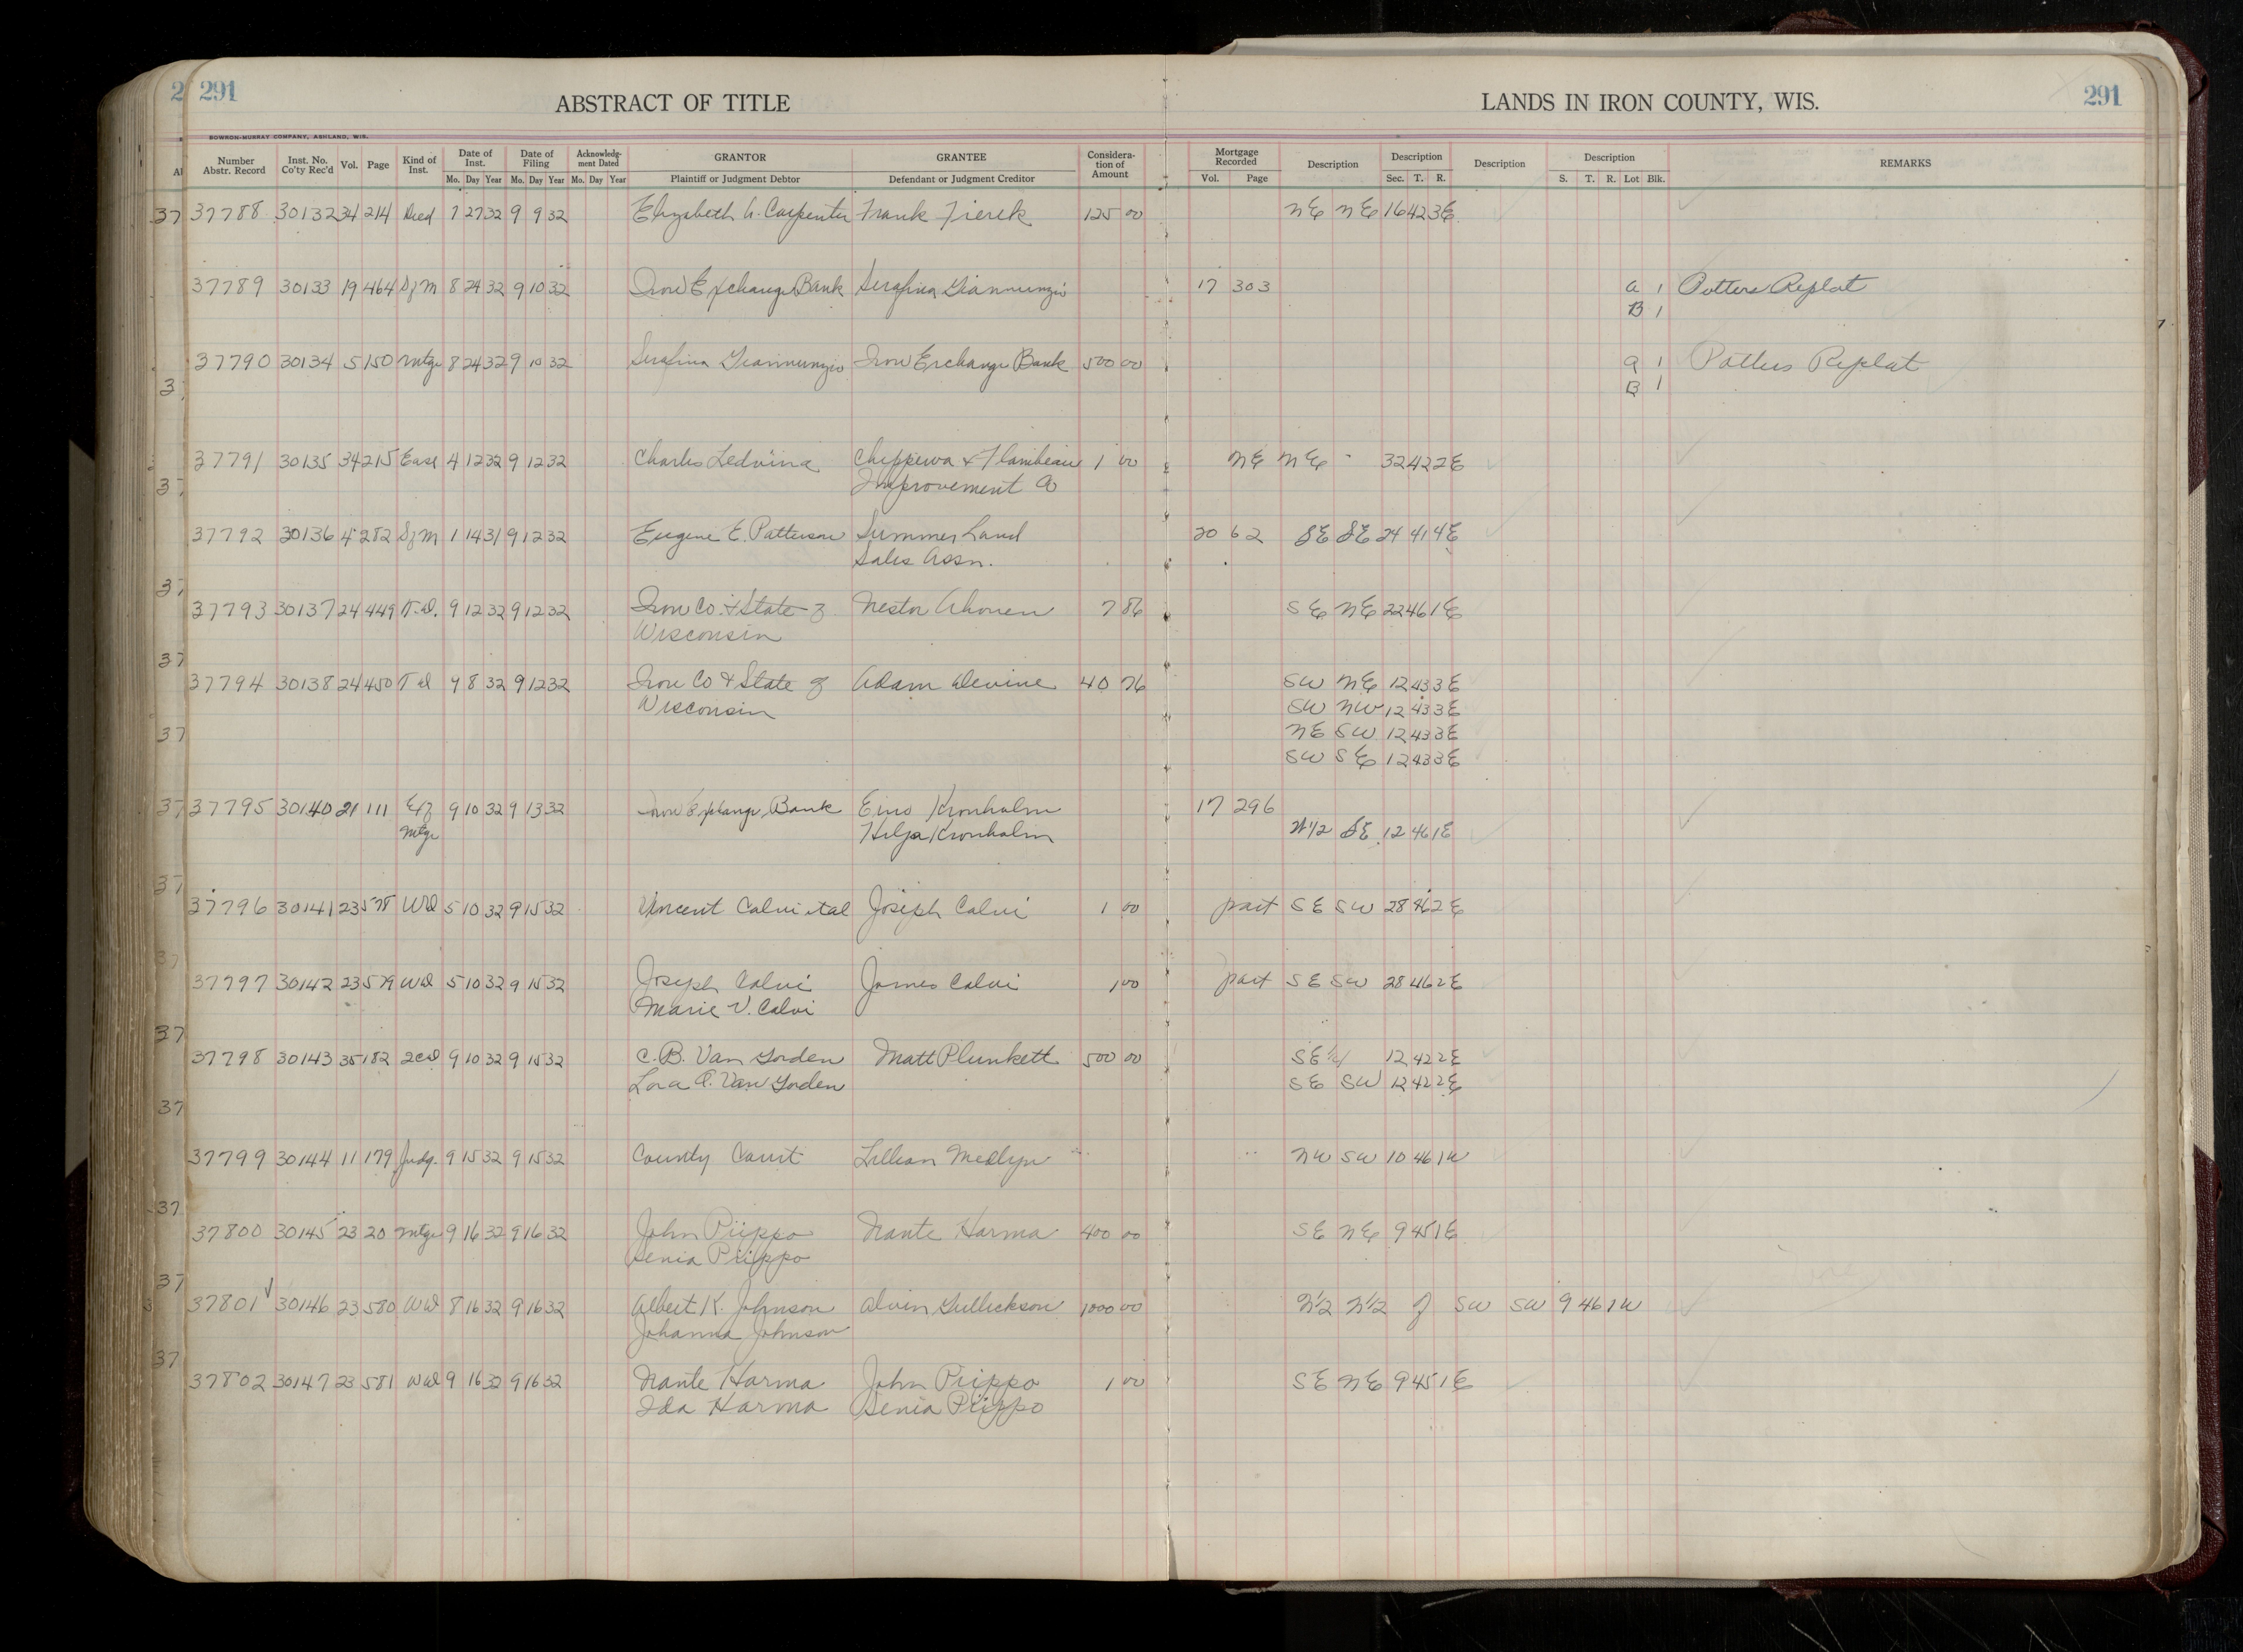 291 ABSTRACT OF TITLE LANDS IN IRON COUNTY, WIS. 291
BOWRON-MURRAY COMPANY, ASHLAND, WIS.
Number Abstr. Record Inst. No. Co'ty Rec'd Vol. Page Kind of Inst. Date of Inst. Mo. Day Year Date of Filing Mo. Day Year Acknowledg-ment Dated Mo. Day Year GRANTOR Plaintiff or Judgment Debtor GRANTEE Defendant or Judgment Creditor Considera-tion of Amount Mortgage Recorded Vol. Page Description Description Sec. T. R. Description Description S. T. R. Lot Blk. REMARKS
37788 30132 34 214 Deed 7 27 32 9 9 32 Elizabeth A. Carpenter Frank Fierek 125 00 NE NE 16 42 3E
37789 30133 19 464 SfM 8 24 32 9 10 32 Iron Exchange Bank Serafina Giannunzio 17 303 A 1 Potters Replat
B 1
37790 30134 5 150 Mtge 8 24 32 9 10 32 Serafina Giannunzio Iron Exchange Bank 500 00 A 1 Potters Replat
B 1
37791 30135 34 215 Ease 4 12 32 9 12 32 Charles Ledvina Chippewa & Flambeau 1 00 NE NE 32 42 2E
Improvement Co
37792 30136 4 282 SfM 1 14 31 9 12 32 Eugene E. Patterson Summer Land 20 62 SE SE 24 41 4E
Sales Assn.
37793 30137 24 449 T.d. 9 12 32 9 12 32 Iron Co. & State of Nestor Ahonen 7 86 SE NE 22 46 1E
Wisconsin
37794 30138 24 450 Td 9 8 32 9 12 32 Iron Co & State of Adam Devine 40 76 SW NE 12 43 3E
Wisconsin SW NW 12 43 3E
NE SW 12 43 3E
SW SE 12 43 3E
37795 30140 21 111 Ext 9 10 32 9 13 32 Iron Exchange Bank Eino Kronholm 17 296
Mtge Hilja Kronholm N1/2 SE 12 46 1E
37796 30141 23 578 Wd 5 10 32 9 15 32 Vincent Calvi etal Joseph Calvi 1 00 part SE SW 28 46 2E
37797 30142 23 579 Wd 5 10 32 9 15 32 Joseph Calvi James Calvi 1 00 part SE SW 28 46 2E
Marie V. Calvi
37798 30143 35 182 2cd 9 10 32 9 15 32 C. B. Van Gorden Matt Plunkett 500 00 SE 1/4 12 42 2E
Lora A. Van Gorden SE SW 12 42 2E
37799 30144 11 179 Judg. 9 15 32 9 15 32 County Court Lillian Medlyn NW SW 10 46 1W
37800 30145 23 20 Mtge 9 16 32 9 16 32 John Piippo Nante Harma 400 00 SE NE 9 45 1E
Senia Piippo
37801 30146 23 580 Wd 8 16 32 9 16 32 Albert K. Johnson Alvin Gullickson 1000 00 N1/2 N1/2 of SW SW 9 46 1W
Johanna Johnson
37802 30147 23 581 Wd 9 16 32 9 16 32 Nante Harma John Piippo 1 00 SE NE 9 45 1E
Ida Harma Senia Piippo